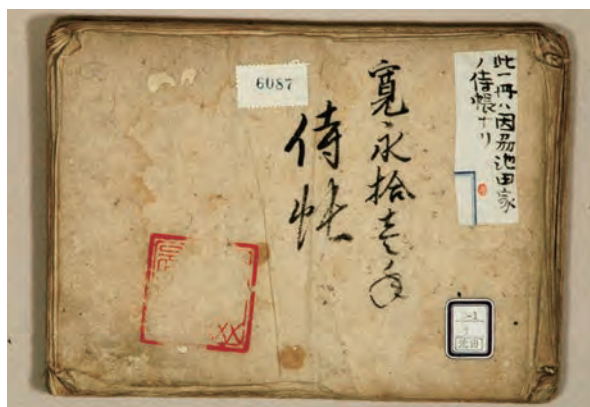 此一冊ハ因州池田家
ノ侍帳ナリ
寛永拾壱年
侍帳
6087
池田